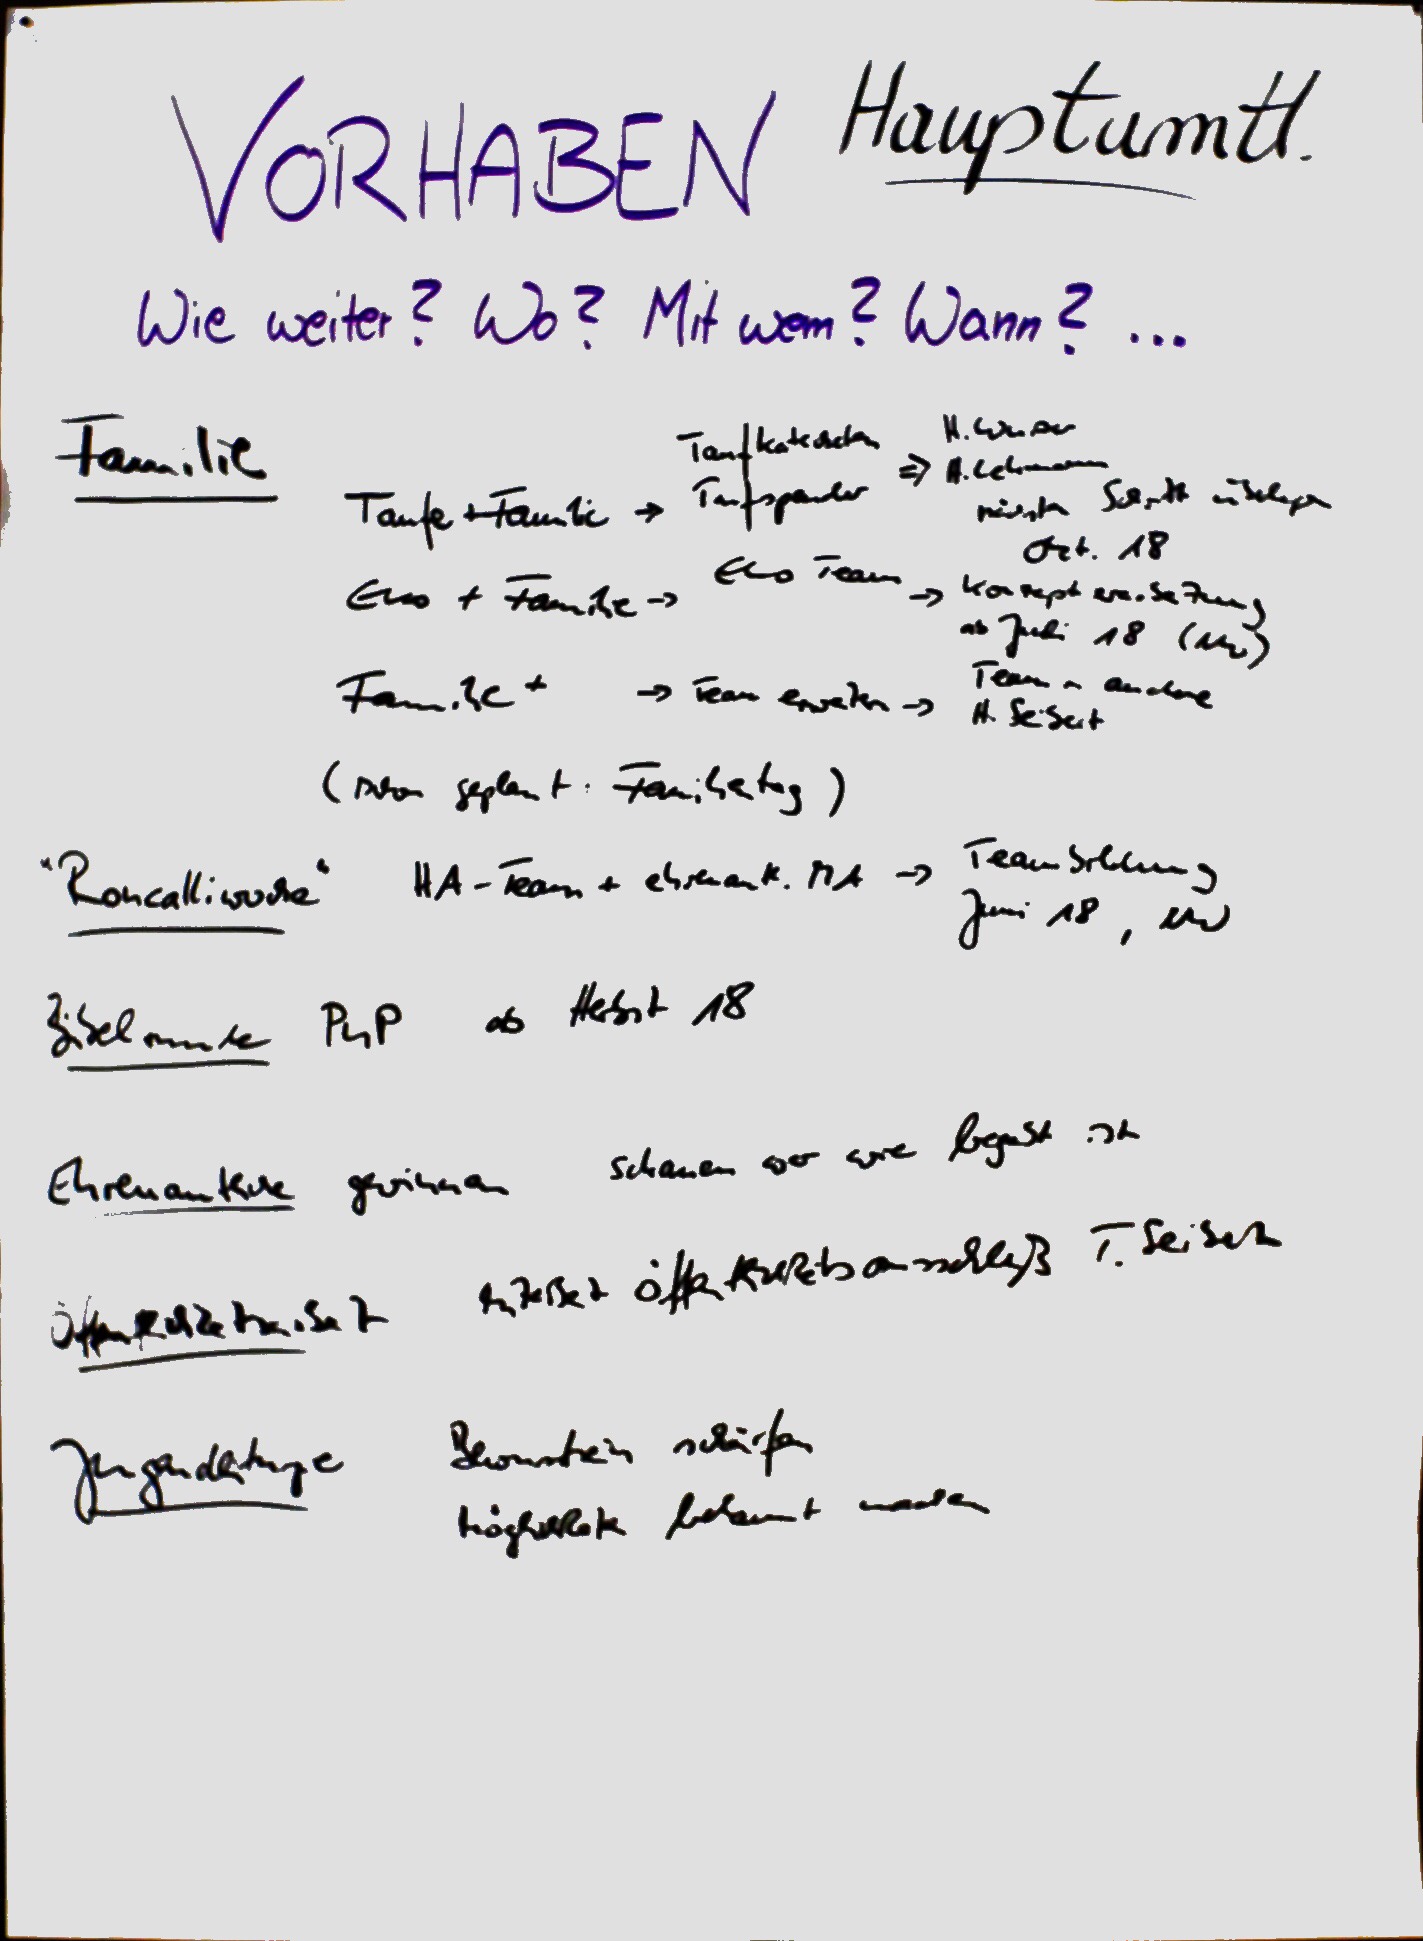 VORHABEN Hauptamtl.
Wie weiter? Wo? Mit wem? Wann? ...
Familie
Taufe + Familie → Taufkatecheten Taufspender ⇒ H. H. Lehmann
nächster Schritt überlegen
Okt. 18
EKO + Familie → EKO Team → Konzept
ab Juli 18
Familie + → Team erweitern → Team + andere
H. Seibert
(schon geplant: Familientag)
"Roncalliwoche" HA-Team + ehrenamtl. MA → Teambildung
Juni 18,
Bibelrunde PhP ab Herbst 18
Ehrenamtliche gewinnen schauen wer wie begabt ist
Öffentlichkeitsarbeit Öffentlichkeitsausschuß T. Seibert
Jugendliturgie Bewusstsein schärfen
Möglichkeiten bekannt machen